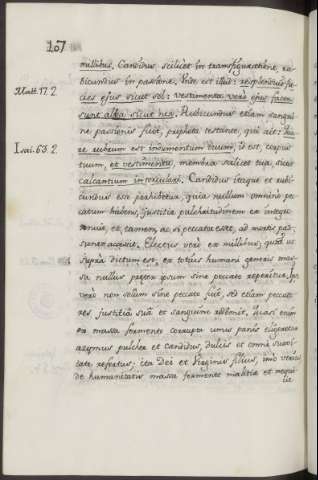 107
millibus. Candidus scilicet in transfiguratione, ru-
bicundus in passione. Unde est illud: resplenduit fa-
Matt. 17. 2
cies ejus sicut sol: vestimenta vero ejus facta
sunt alba sicut nix. Rubicundus etiam sangui-
ne passionis fuit, propheta testante, qui ait: Qua-
Isai. 63. 2
re rubrum est indumentum tuum, id est, corpus
tuum, et vestimenta, membra scilicet tua, sicut
calcantium in torculari. Candidus itaque et rubi-
cundus est perhibetur, quia nullum omnino pec-
catum habens, justitiæ pulchritudinem ex integro
et, tamen, ac si peccator esset, ad mortis
Electus vero ex millibus; quia ut
supra dictum est, ex totius humani generis mas-
sa nullus præter ipsum sine peccato reperitur. Ipse
vero non solum sine peccato fuit, sed etiam peccato
res justitia sua et sanguine redemit, quasi enim
ex massa fermento corrupta unus panis eligeretur
azymus pulcher et candidus, dulcis et omni suavi-
tate refertus; ita Dei et Virginis filius, imo
de humanitatis massa fermento malitiæ et nequi-
tiæ